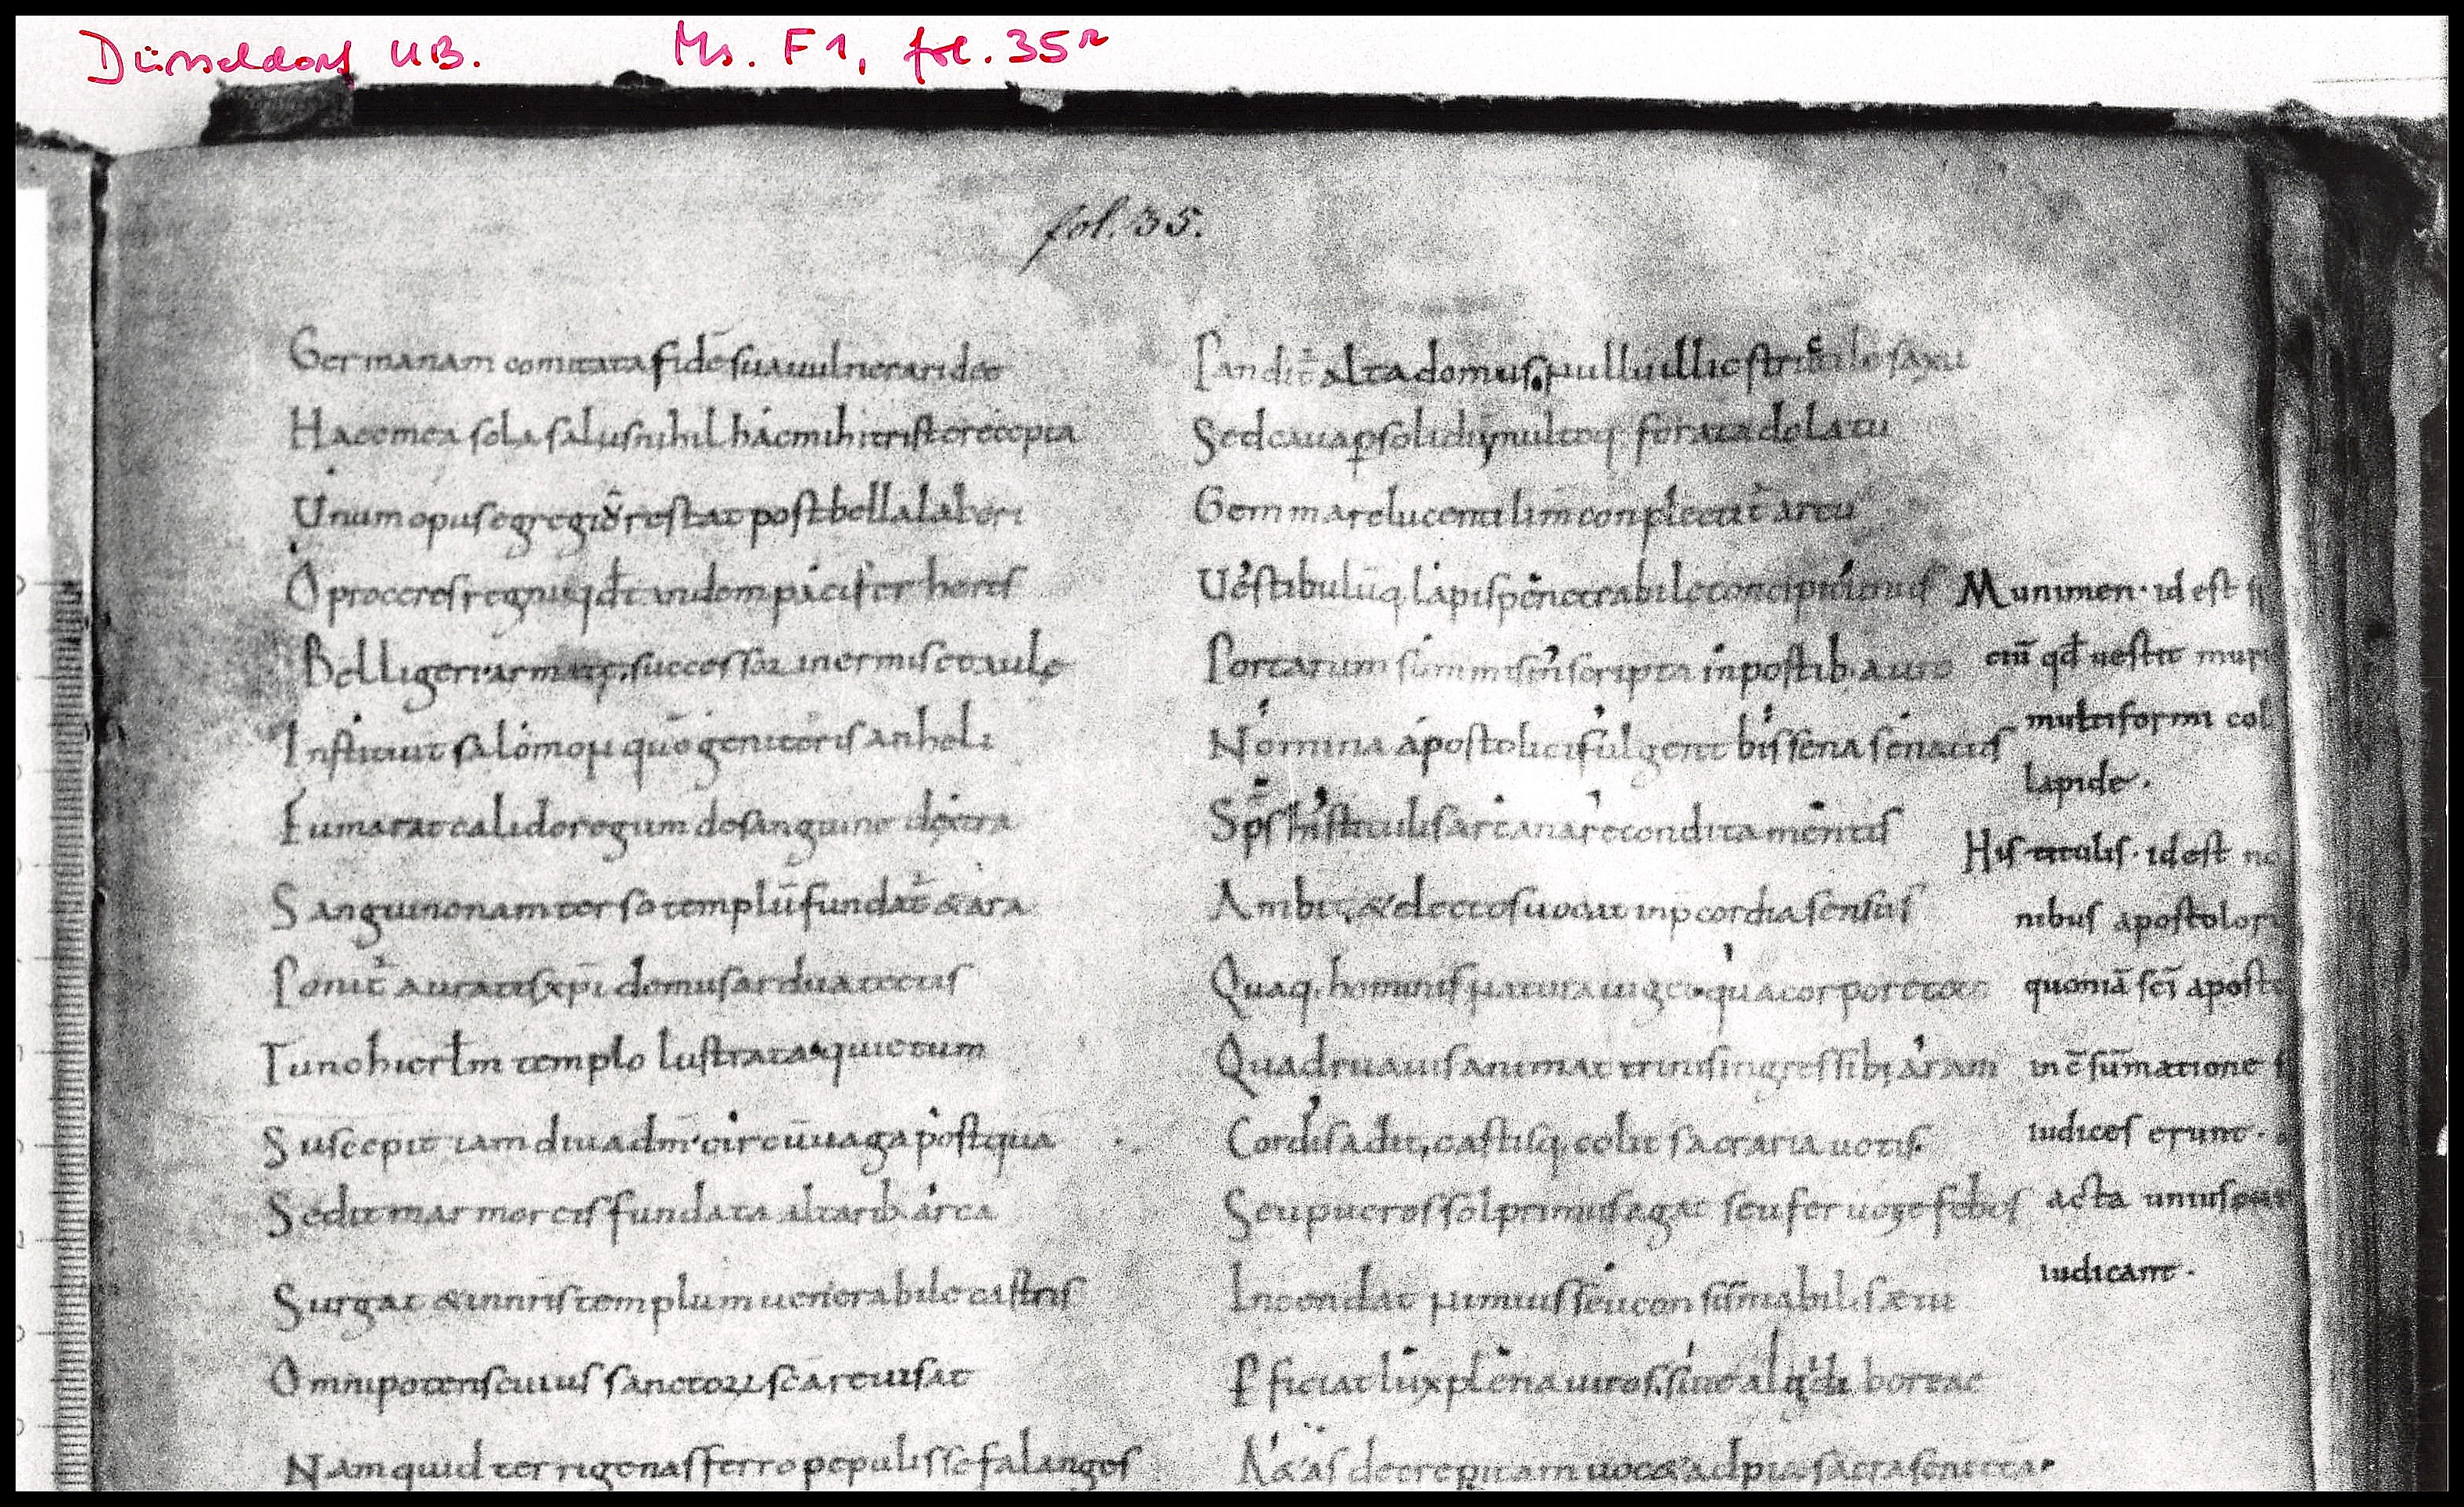 Düsseldorf UB. Ms. F1, fol. 35r
fol. 35.
Germanam comitata fidē sua uulnera ridet
Haec mea sola salus nihil hac mihi triste recepta
Unum opus egregiū restat post bella labori
O proceres regni qđ tandem pacifer heres
Belligeri armatę successor inermis et aulę
Instituit salomon quō genitoris anheli
Fumarat calido regum de sanguine dextra
Sanguine nam terso templū fundat̄ & ara
Ponit̄ auratis xp̄i domus ardua tectis
Tunc hierłm templo lustrata quietum
Suscepit iam diua dm̄ circūuaga postquā
Sedit marmoreis fundata altarib. arca
Surgat & in nr̄is templum uenerabile castris
Omnipotens cuius sanctorꝝ sc̄a reuisat
Nam quid terrigenas ferro pepulisse falanges
Pandit̄ alta domus. nullu illic structile saxu
Sed caua ꝑ solidū multoq. forata dolatu
Gemma relucenti lim̄ conplectit̄ artu
Uestibulūq. lapis penetrabile concipit unus
Portarum summis inscripta in postib. auro
Nomina apostolici fulgent bis sena senatus
Sp̄s his titulis arcana recondita mentis
Ambit, & electos uocat in p̄cordia sensus
Quaq. hominis natura uiget. quā corpore toto
Quadrua uis animat trinis ingressib; aram
Cordis adit, castisq. colit sacraria uotis.
Seu pueros sol primus agat seu feruor ephebos
Incendat nimius seu consūmabilis aeui
ꝑficiat lux plena uiros. siue algida boreae
Aetas decrepitam uocat ad pia sacra senecta.
Munimen. id est
cm̄ qđ uestit muri
multiformi col
lapide.
His titulis. id est no
nibus apostolor
quoniā sc̄i aposto
in c̄sūmatione s
iudices erunt.
acta uniuscui
iudicant.